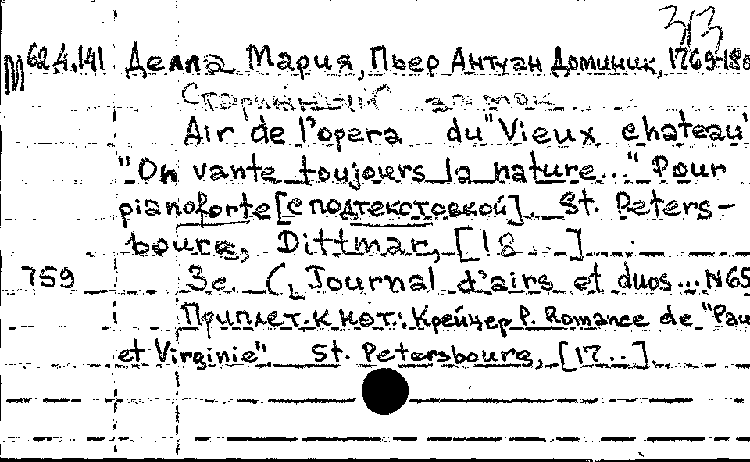 313
М62 4.141 Делла Мария, Пьер Антуан Доминик, 1769-180
Старинный замок
Air de l'opera du "Vieux chateau"
"On vante toujours la nature..." Pour
pianoforte [с подтекстовкой]. St. Peters-
bourg, Dittmar, [18 ...]
759 3c. (Journal d'airs et duos... N65
Приплет. к нот.: Крейцер Р. Romance de "Pau
et Virginie" St. Petersbourg, [17..].